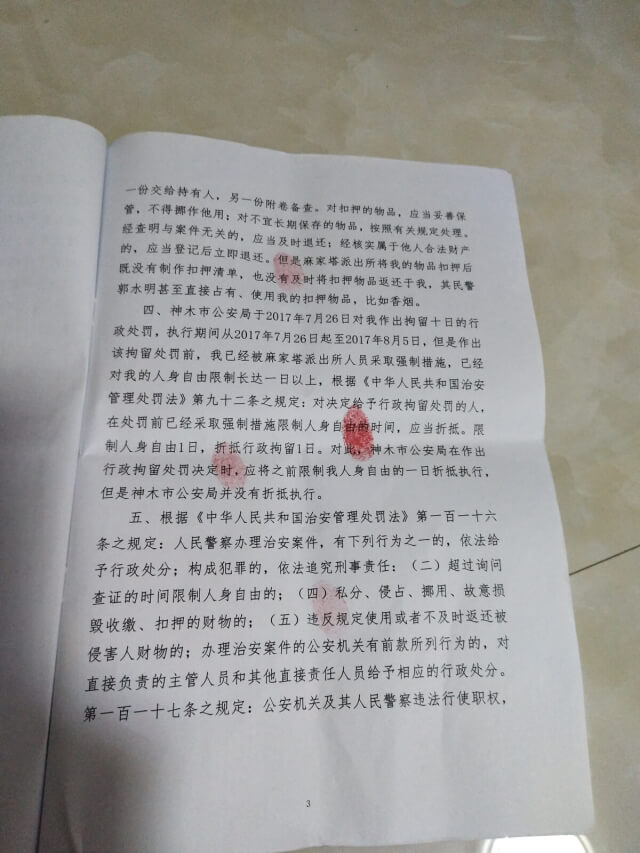 一份交给持有人，另一份附卷备查。对扣押的物品，应当妥善保
管，不得挪作他用；对不宜长期保存的物品，按照有关规定处理。
经查明与案件无关的，应当及时退还；经核实属于他人合法财产
的，应当登记后立即退还。但是麻家塔派出所将我的物品扣押后
既没有制作扣押清单，也没有及时将扣押物品返还于我，其民警
郭水明甚至直接占有、使用我的扣押物品，比如香烟。
四、神木市公安局于2017年7月26日对我作出拘留十日的行
政处罚，执行期间从2017年7月26日起至2017年8月5日，但是作出
该拘留处罚前，我已经被麻家塔派出所人员采取强制措施，已经
对我的人身自由限制长达一日以上，根据《中华人民共和国治安
管理处罚法》第九十二条之规定：对决定给予行政拘留处罚的人，
在处罚前已经采取强制措施限制人身自由的时间，应当折抵。限
制人身自由1日，折抵行政拘留1日。对此，神木市公安局在作出
行政拘留处罚决定时，应将之前限制我人身自由的一日折抵执行，
但是神木市公安局并没有折抵执行。
五、根据《中华人民共和国治安管理处罚法》第一百一十六
条之规定：人民警察办理治安案件，有下列行为之一的，依法给
予行政处分；构成犯罪的，依法追究刑事责任：（二）超过询问
查证的时间限制人身自由的；（四）私分、侵占、挪用、故意损
毁收缴、扣押的财物的；（五）违反规定使用或者不及时返还被
侵害人财物的；办理治安案件的公安机关有前款所列行为的，对
直接负责的主管人员和其他直接责任人员给予相应的行政处分。
第一百一十七条之规定：公安机关及其人民警察违法行使职权，
3